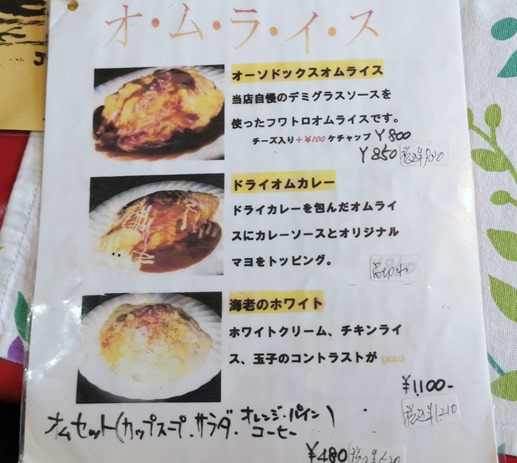 オ・ム・ラ・イ・ス
オーソドックスオムライス
当店自慢のデミグラスソースを
使ったフワトロオムライスです。
チーズ入り+¥100 ケチャップ ¥800
¥850
ドライオムカレー
ドライカレーを包んだオムライ
スにカレーソースとオリジナル
マヨをトッピング。
海老のホワイト
ホワイトクリーム、チキンライ
ス、玉子のコントラストが
¥1100-
税込¥1210
オムセット(カップスープ.サラダ.オレンジ・パイン
コーヒー)
¥480